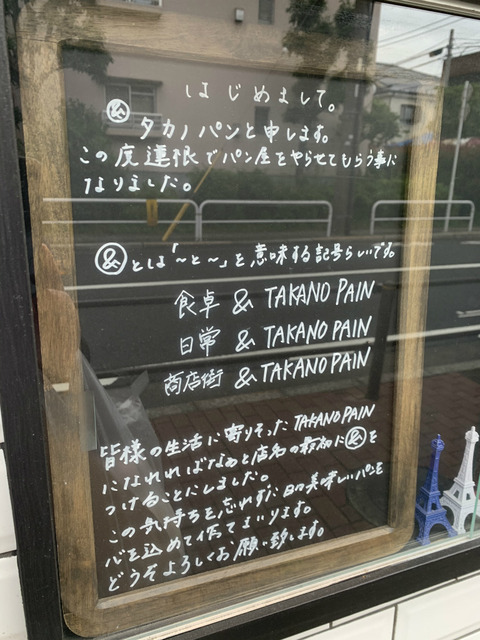 はじめまして。
& タカノパンと申します。
この度蓮根でパン屋をやらせてもらう事に
なりました。
&とは「〜と〜」を意味する記号らしいです。
食卓 & TAKANO PAIN
日常 & TAKANO PAIN
商店街 & TAKANO PAIN
皆様の生活に寄りそったTAKANO PAIN
になれればなぁと店名の最初に&を
つけることにしました。
この気持ちを忘れずに日々美味しいパンを
心を込めて作てまいります。
どうぞよろしくお願い致します。